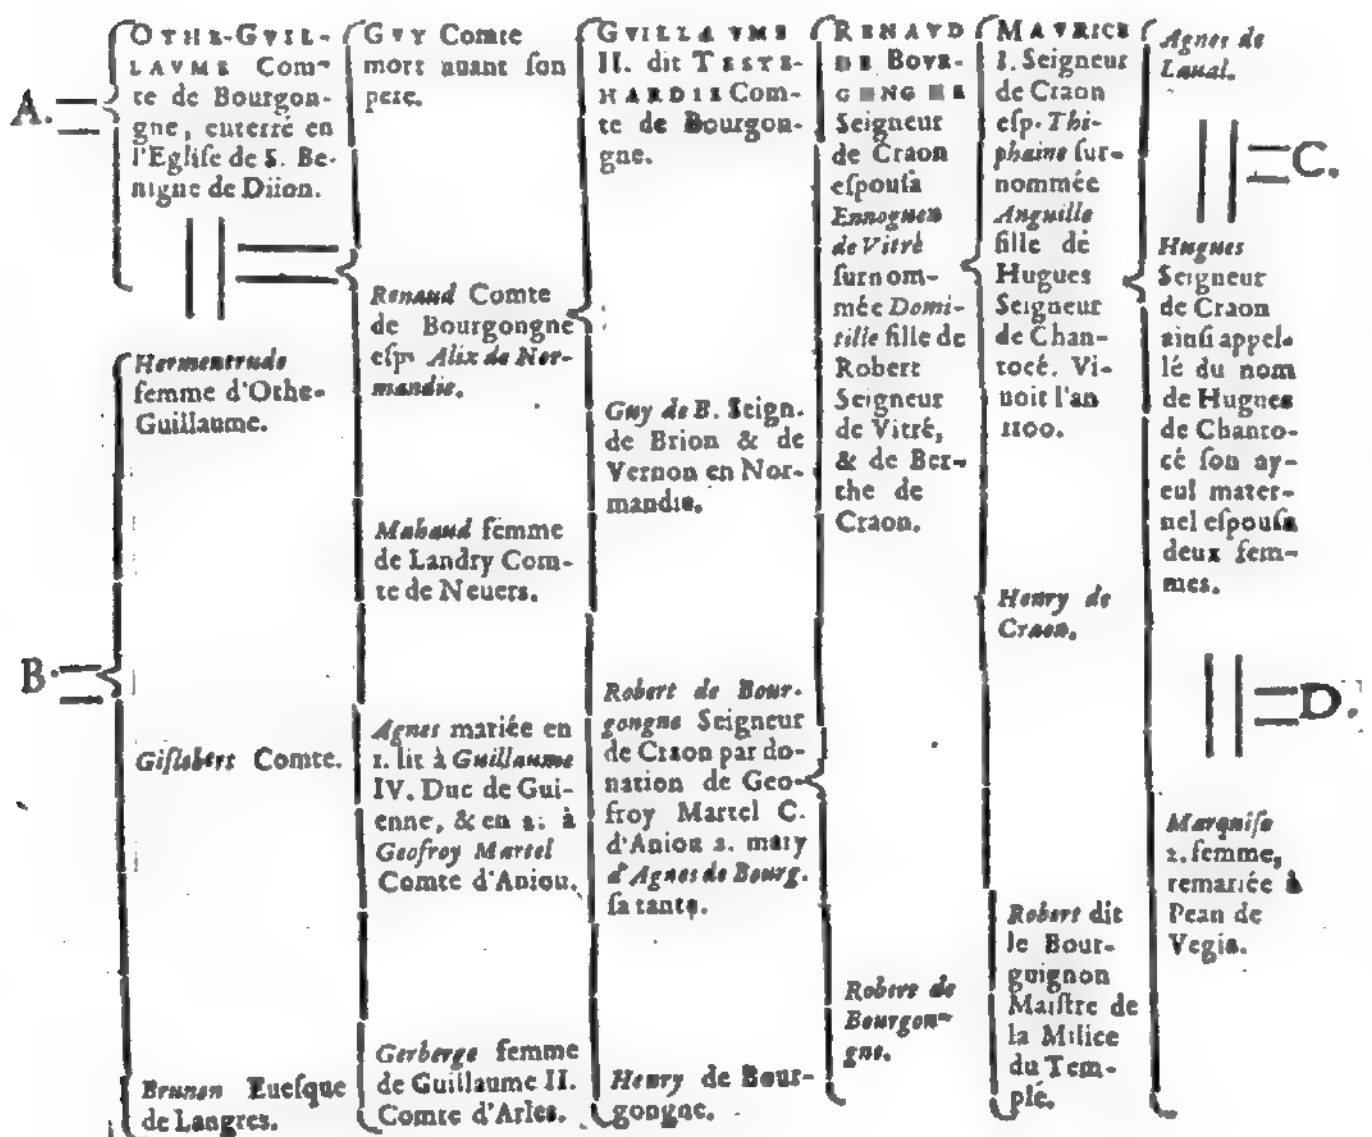 A.
OTHE-GVIL-
LAVME Com-
te de Bourgon-
gne, enterré en
l'Egliſe de S. Be-
nigne de Diion.
B.
Hermentrude
femme d'Othe-
Guillaume.
Giſlebert Comte.
Brunon Eueſque
de Langres.
GVY Comte
mort auant ſon
pere.
Renaud Comte
de Bourgongne
eſp. Alix de Nor-
mandie.
Mahaud femme
de Landry Com-
te de Neuers.
Agnes mariée en
1. lit à Guillaume
IV. Duc de Gui-
enne, & en 2. à
Geofroy Martel
Comte d'Aniou.
Gerberge femme
de Guillaume II.
Comte d'Arles.
GVILLAVME
II. dit TESTE-
HARDIE Com-
te de Bourgon-
gne.
Guy de B. Seign.
de Brion & de
Vernon en Nor-
mandie.
Robert de Bour-
gongne Seigneur
de Craon par do-
nation de Geo-
froy Martel C.
d'Aniou 2. mary
d'Agnes de Bourg.
ſa tante.
Henry de Bour-
gongne.
RENAVD
DE BOVR-
GONGNE
Seigneur
de Craon
eſpouſa
Ennoguen
de Vitré
ſurnom-
mée Domi-
tille fille de
Robert
Seigneur
de Vitré,
& de Ber-
the de
Craon.
Robert de
Bourgon-
gne.
MAVRICE
I. Seigneur
de Craon
eſp. Thi-
phaine ſur-
nommée
Anguille
fille de
Hugues
Seigneur
de Chan-
tocé. Vi-
uoit l'an
1100.
Henry de
Craon.
Robert dit
le Bour-
guignon
Maiſtre de
la Milice
du Tem-
ple.
Agnes de
Laual.
C.
Hugues
Seigneur
de Craon
ainſi appel-
lé du nom
de Hugues
de Chanto-
cé ſon ay-
eul mater-
nel eſpouſa
deux fem-
mes.
D.
Marquiſe
2. femme,
remariée à
Pean de
Vegia.